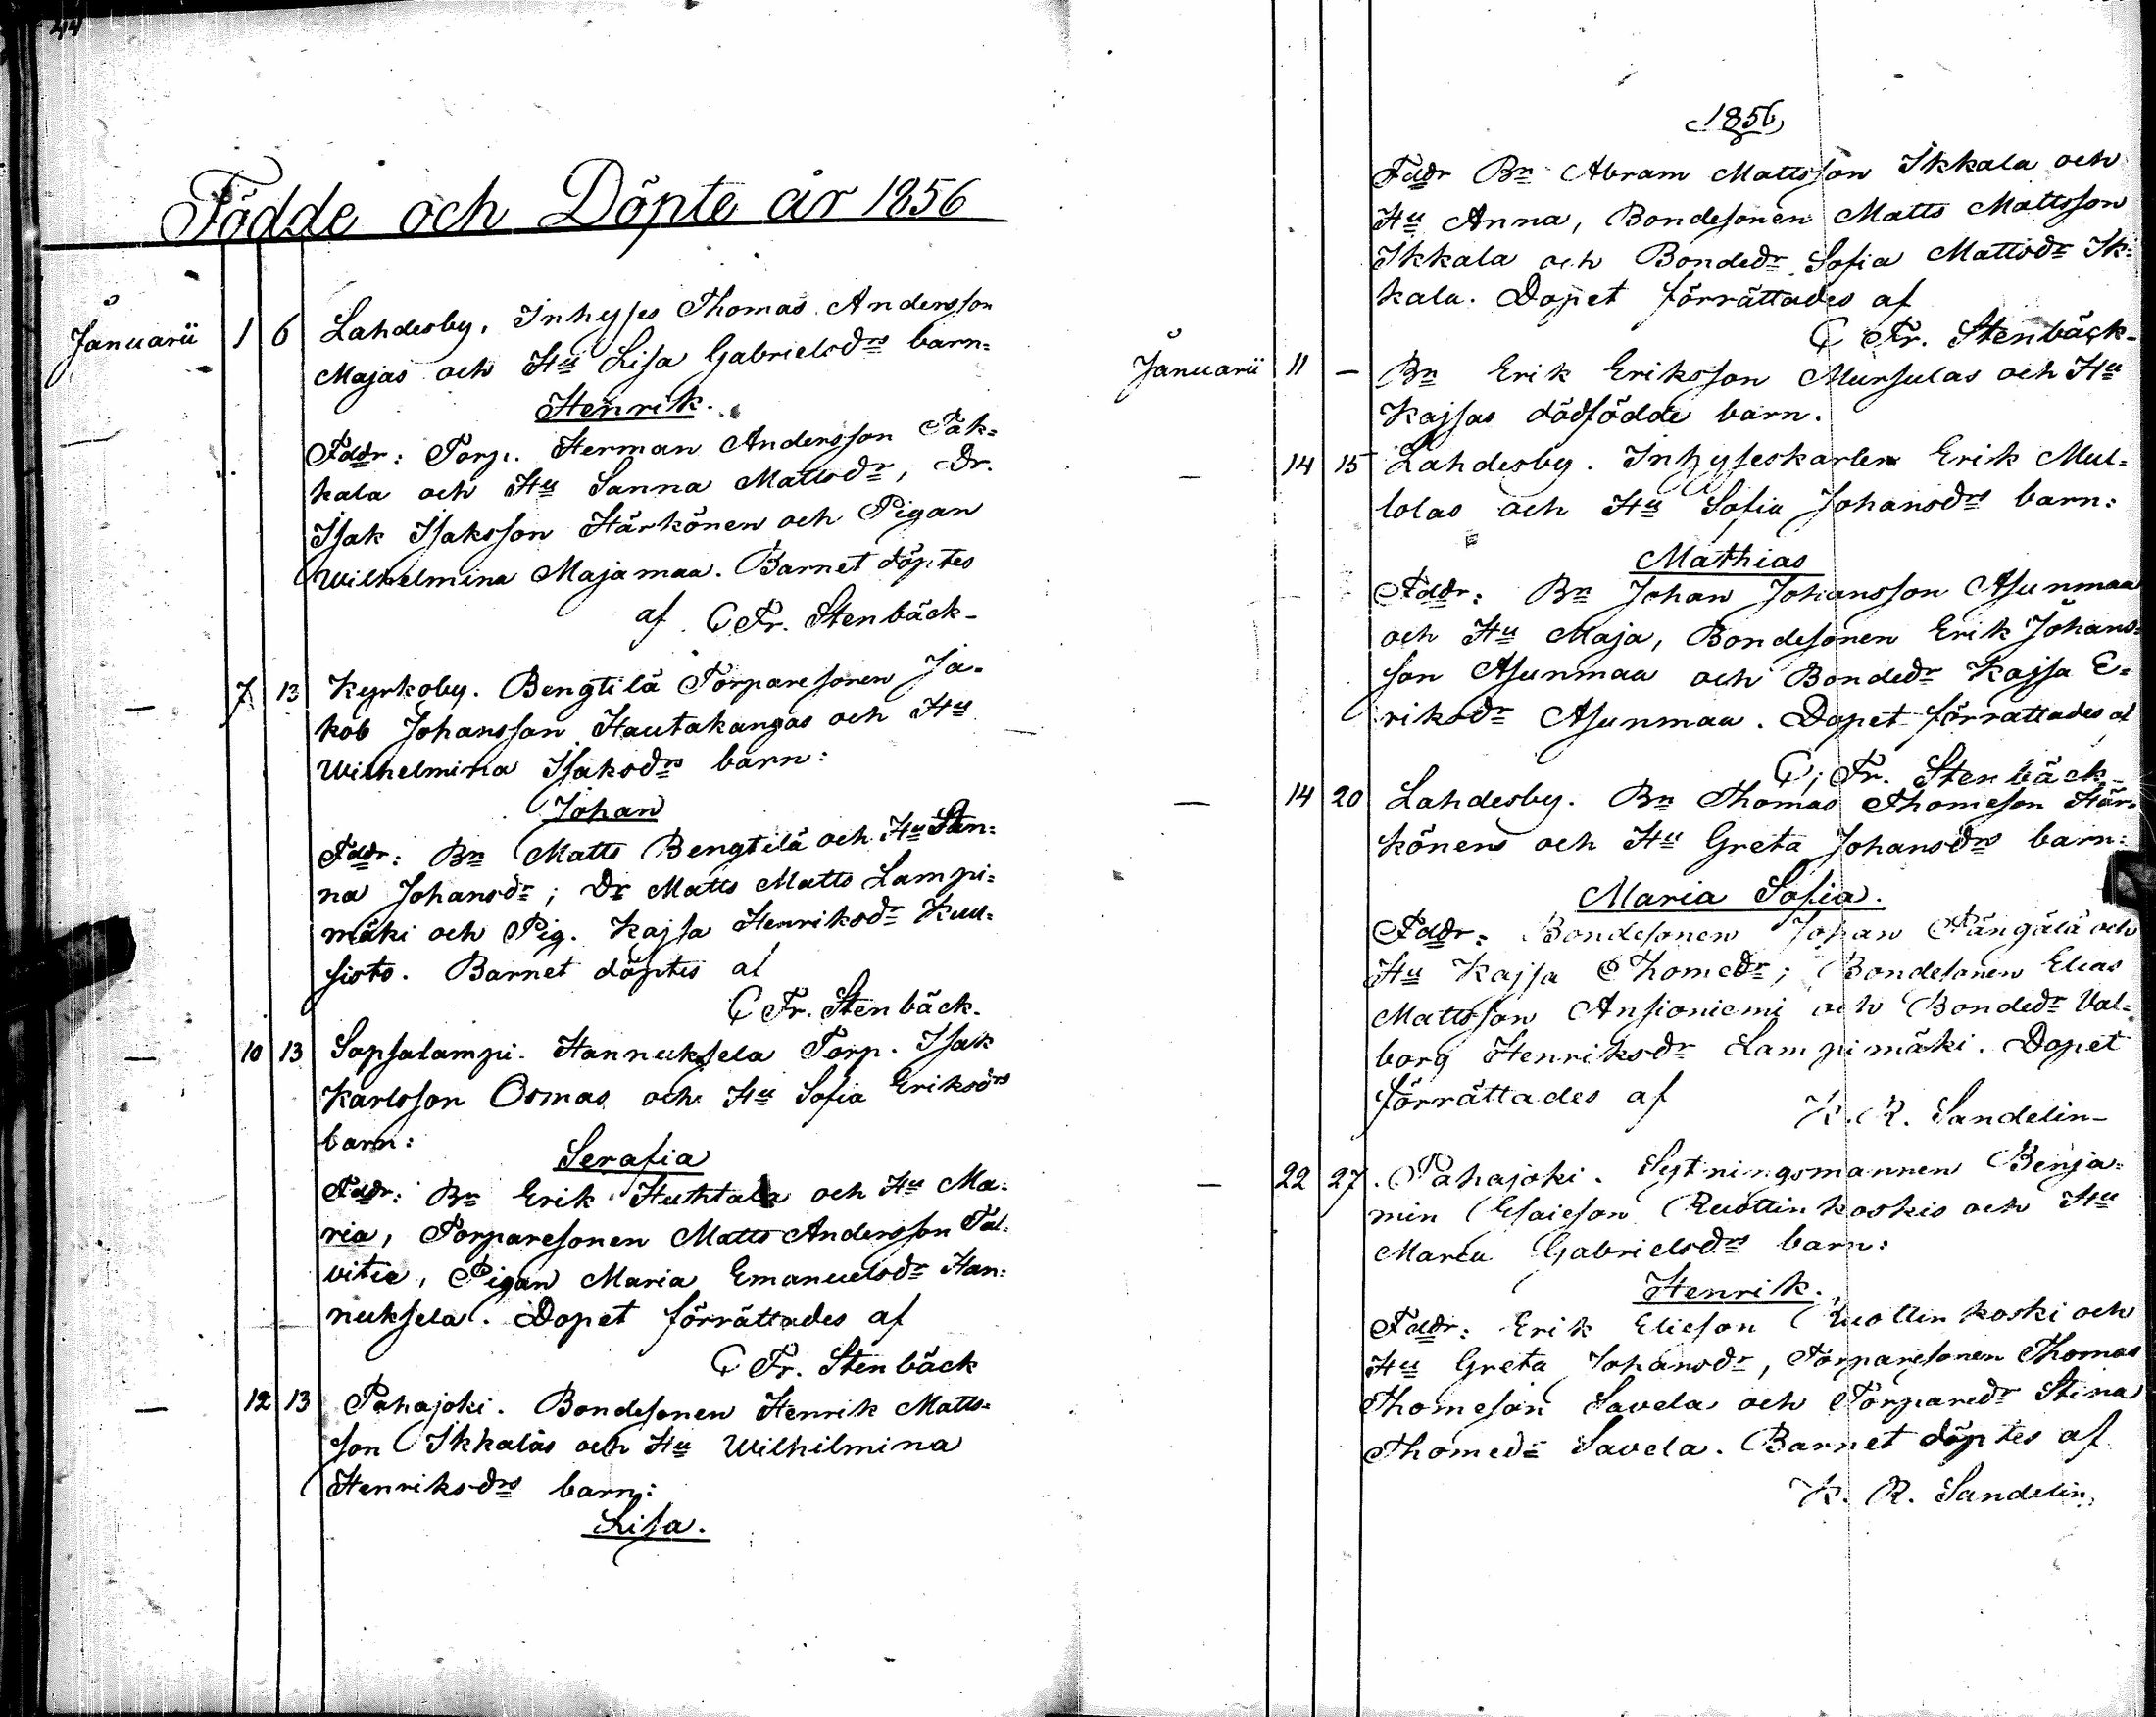 44
Födde och Döpte år 1856
Januarii 1 6 Lahdesby. Inhyses Thomas Andersson
Majas och Hu Lisa Gabrielsdrs barn:
Henrik.
Fddr: Torp. Herman Andersson Päk=
kala och Hu Sanna Mattsdr, Dr.
Isak Isaksson Härkönen och Pigan
Wilhelmina Majamaa. Barnet döptes
af C Fr. Stenbäck
— 7 13 Kyrkoby. Bengtilä Torparesonen Ja=
kob Johansson Hautakangas och Hu
Wilhelmina Isaksdrs barn:
Johan
Fddr: Bn Matts Bengtilä och Hu San=
na Johansdr; Dr Matts Matts Lampi=
mäki och Pig. Kajsa Henriksdr Kuu=
sisto. Barnet döptes af
C Fr. Stenbäck.
— 10 13 Sapsalampi. Hannuksela Torp. Isak
Karlsson Osmas och Hu Sofia Eriksdrs
barn:
Serafia
Fddr: Bn Erik Huhtala och Hu Ma=
ria, Torparesonen Matts Andersson Tal=
vitie, Pigan Maria Emanuelsdr Han=
nuksela. Dopet förrättades af
C Fr. Stenbäck
— 12 13 Pahajoki. Bondesonen Henrik Matts=
son Ikkalas och Hu Wilhilmina
Henriksdrs barn:
Lisa.
1856
Fddr Bn Abram Mattsson Ikkala och
Hu Anna, Bondesonen Matts Mattsson
Ikkala och Bondedr Sofia Mattsdr Ik=
kala. Dopet förrättades af
C Fr. Stenbäck
Januarii 11 — Bn Erik Eriksson Mursulas och Hu
Kajsas dödfödde barn.
— 14 15 Lahdesby. Inhyseskarlen Erik Mul=
lolas och Hu Sofia Johansdrs barn:
Mathias
Fddr: Bn Johan Johansson Asunmaa
och Hu Maja, Bondesonen Erik Johans=
son Asunmaa och Bondedr Kajsa E=
riksdr Asunmaa. Dopet förrattades af
C. Fr. Stenbäck
— 14 20 Lahdesby. Bn Thomas Thomeson Här=
könens och Hu Greta Johansdrs barn:
Maria Sofia.
Fddr: Bondesonen Johan Pängälä och
Hu Kajsa Thomedr; Bondesonen Elias
Mattsson Ansioniemi och Bondedr Val=
borg Henriksdr Lampimäki. Dopet
förrättades af K. R. Sandelin
— 22 27. Pahajoki. Sytningsmannen Benja=
min Esaieson Ruottinkoskis och Hu
Maria Gabrielsdrs barn:
Henrik.
Fddr: Erik Elieson Ruottinkoski och
Hu Greta Johansdr, Torparesonen Thomas
Thomeson Savela och Torparedr Stina
Thomedr Savela. Barnet döptes af
K. R. Sandelin